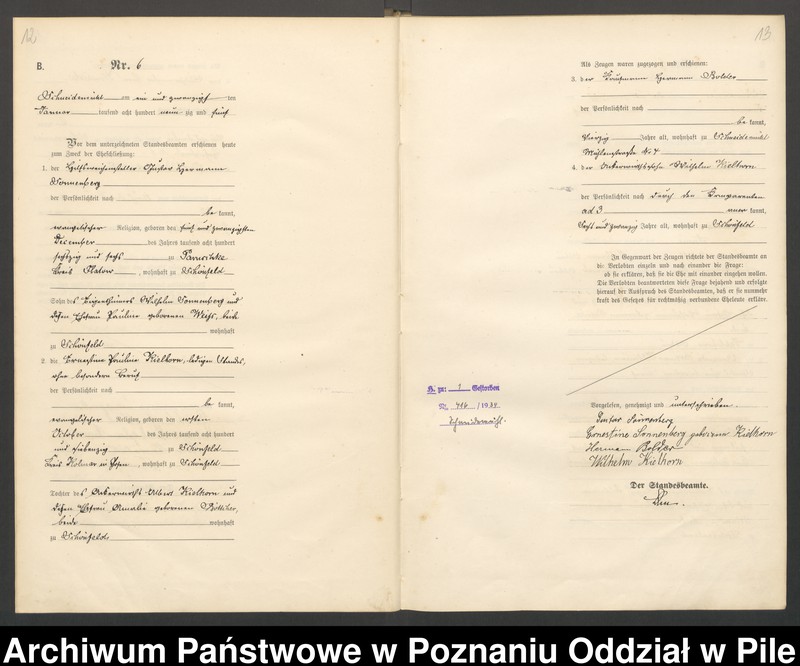 12
B.
Nr. 6
Schneidemühl am ein und zwanzigsten
Januar tausend acht hundert neunzig und fünf
Vor dem unterzeichneten Standesbeamten erschienen heute
zum Zweck der Eheschließung:
1. der Hilfsweichensteller Gustav Hermann
Sonnenberg
der Persönlichkeit nach
be kannt,
evangelischer Religion, geboren den fünf und zwanzigsten
Dezember des Jahres tausend acht hundert
sechszig und sechs zu
Kreis Flatow, wohnhaft zu Schönfeld
Sohn des Eigenthümers Wilhelm Sonnenberg und
dessen Ehefrau Pauline geborenen Weiß, beide
wohnhaft
zu Schönfeld
2. die Ernestine Pauline Kielhorn, ledigen Standes,
ohne besondern Beruf
der Persönlichkeit nach
be kannt,
evangelischer Religion, geboren den ersten
Oktober des Jahres tausend acht hundert
und siebenzig zu Schönfeld
Kreis Kolmar in Posen, wohnhaft zu Schönfeld
Tochter des Ackerwirths Albert Kielhorn und
dessen Ehefrau Amalie geborenen Bötticher,
beide wohnhaft
zu Schönfeld
13
Als Zeugen waren zugezogen und erschienen:
3. der Kaufmann Hermann Bolder
der Persönlichkeit nach
be kannt,
vierzig Jahre alt, wohnhaft zu Schneidemühl
Mühlenstraße Nr 7
4. der Ackerwirthssohn Wilhelm Kielhorn
der Persönlichkeit nach durch den Comparenten
ad 3 aner kannt,
sechs und zwanzig Jahre alt, wohnhaft zu Schönfeld
In Gegenwart der Zeugen richtete der Standesbeamte an
die Verlobten einzeln und nach einander die Frage:
ob sie erklären, daß sie die Ehe mit einander eingehen wollen.
Die Verlobten beantworteten diese Frage bejahend und erfolgte
hierauf der Ausspruch des Standesbeamten, daß er sie nunmehr
kraft des Gesetzes für rechtmäßig verbundene Eheleute erkläre.
H. zu: 1 Gestorben
Nr. 416 / 1934
Schneidemühl.
Vorgelesen, genehmigt und unterschrieben.
Gustav Sonnenberg
Ernestine Sonnenberg geborene Kielhorn
Hermann Bolder
Wilhelm Kielhorn
Der Standesbeamte.
Archiwum Państwowe w Poznaniu Oddział w Pile